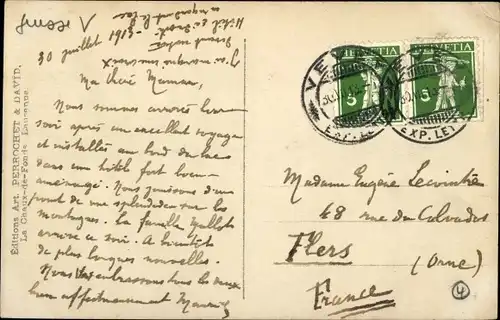 Suisse V
30 juillet 1918
Ma chère Maman,
Nous sommes arrivés hier
soir après un excellent voyage
et installés au bord du lac
dans un hôtel fort bien
aménagé. Nous jouissons d'un
point de vue splendide sur les
montagnes. La famille Mallet
arrive ce soir. A bientôt
de plus longues nouvelles.
Nous t'embrassons tous les deux
bien affectueusement Maurice
Editions Art. PERROCHET & DAVID,
La Chaux-de-Fonds
HELVETIA
HELVETIA
5
5
EXP. LET
EXP. LET
Madame Eugène Lecointre
48 rue du Calvados
Flers
(Orne)
France
4